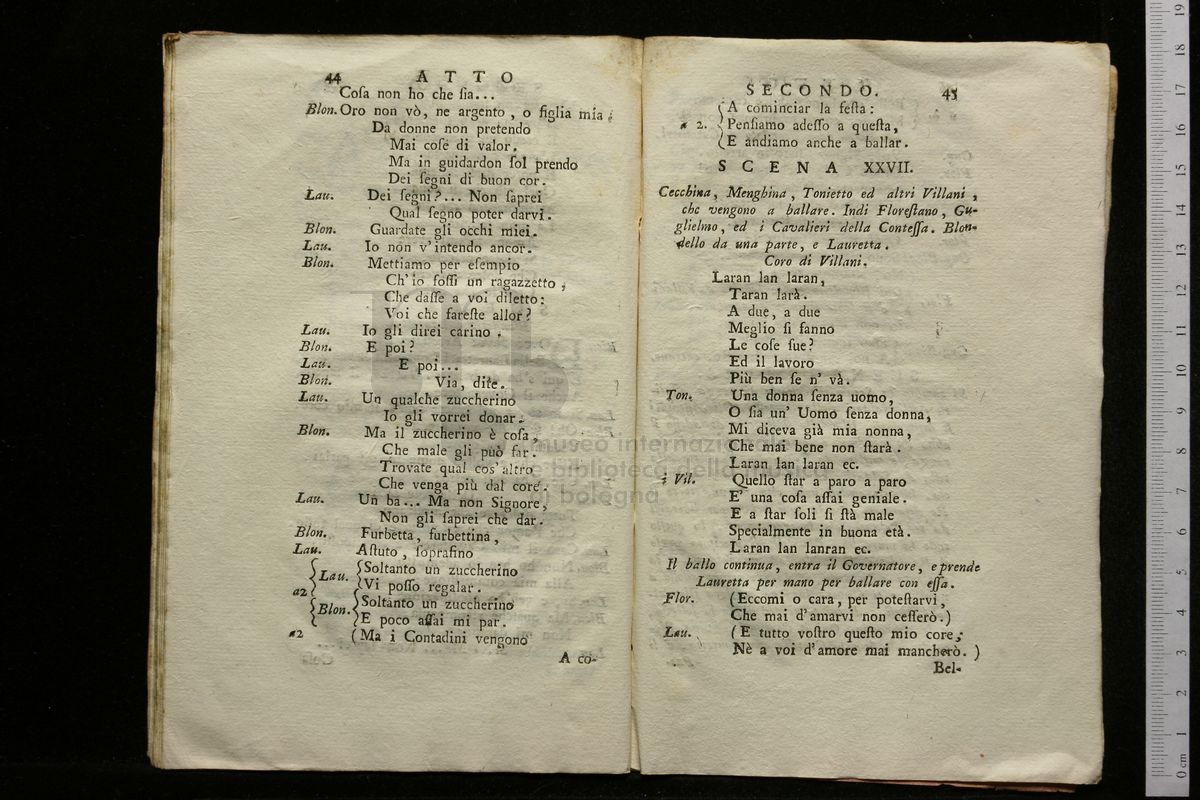 44 ATTO
Coſa non ho che ſia...
Blon. Oro non vò, ne argento, o figlia mia;
Da donne non pretendo
Mai coſe di valor.
Ma in guidardon ſol prendo
Dei ſegni di buon cor.
Lau. Dei ſegni?... Non ſaprei
Qual ſegno poter darvi.
Blon. Guardate gli occhi miei.
Lau. Io non v'intendo ancor.
Blon. Mettiamo per eſempio
Ch'io foſſi un ragazzetto,
Che daſſe a voi diletto:
Voi che fareſte allor?
Lau. Io gli direi carino.
Blon. E poi?
Lau. E poi...
Blon. Via, dite.
Lau. Un qualche zuccherino
Io gli vorrei donar.
Blon. Ma il zuccherino è coſa,
Che male gli può far.
Trovate qual cos'altro
Che venga più dal core.
Lau. Un ba... Ma non Signore,
Non gli ſaprei che dar.
Blon. Furbetta, furbettina,
Lau. Aſtuto, ſopraſino
Lau. Soltanto un zuccherino
a2 Vi poſſo regalar.
Blon. Soltanto un zuccherino
E poco aſſai mi par.
a2 (Ma i Contadini vengono
A co-
SECONDO. 45
A cominciar la feſta:
a 2. Penſiamo adeſſo a queſta,
E andiamo anche a ballar.
SCENA XXVII.
Cecchina, Menghina, Tonietto ed altri Villani,
che vengono a ballare. Indi Floreſtano, Gu-
glielmo, ed i Cavalieri della Conteſſa. Blon-
dello da una parte, e Lauretta.
Coro di Villani.
Laran lan laran,
Taran larà.
A due, a due
Meglio ſi fanno
Le coſe ſue?
Ed il lavoro
Più ben ſe n' và.
Ton. Una donna ſenza uomo,
O ſia un' Uomo ſenza donna,
Mi diceva già mia nonna,
Che mai bene non ſtarà.
Laran lan laran ec.
i Vil. Quello ſtar a paro a paro
E' una coſa aſſai geniale.
E a ſtar ſoli ſi ſtà male
Specialmente in buona età.
Laran lan lanran ec.
Il ballo continua, entra il Governatore, e prende
Lauretta per mano per ballare con eſſa.
Flor. (Eccomi o cara, per poteſtarvi,
Che mai d'amarvi non ceſſerò.)
Lau. (E tutto voſtro queſto mio core;
Nè a voi d'amore mai mancherò.)
Bel-
museo internazionale
e biblioteca della musica
di bologna
0 cm 1 2 3 4 5 6 7 8 9 10 11 12 13 14 15 16 17 18 19